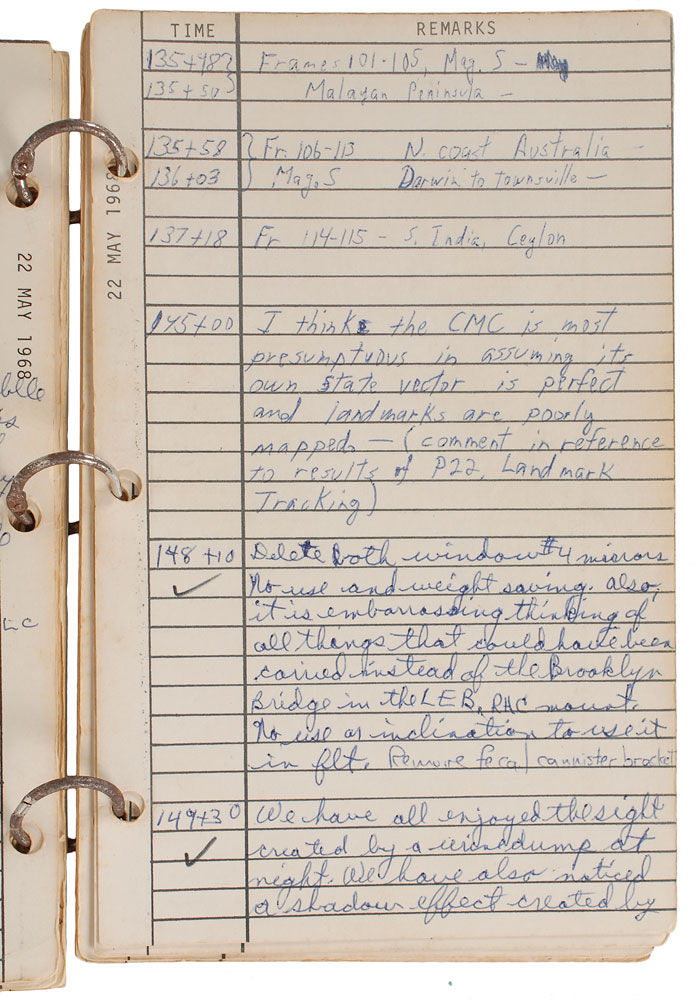 TIME REMARKS
135+48 } Frames 101-105, Mag. S -
135+50 } Malayan Peninsula -
135+58 } Fr. 106-113 N. coast Australia -
136+03 } Mag. S Darwin to Townsville -
137+18 Fr 114-115 - S. India, Ceylon
145+00 I think the CMC is most
presumptuous in assuming its
own state vector is perfect
and landmarks are poorly
mapped. — (comment in reference
to results of P22, Landmark
Tracking)
148+10 Delete both window #4 mirrors
✓ No use and weight saving. also,
it is embarrassing thinking of
all things that could have been
carried instead of the Brooklyn
Bridge in the LEB, RHC mount.
No use or inclination to use it
in flt. Remove fecal cannister bracket
149+30 We have all enjoyed the sight
✓ created by a urine dump at
night. We have also noticed
a shadow effect created by
22 MAY 1968
22 MAY 1968